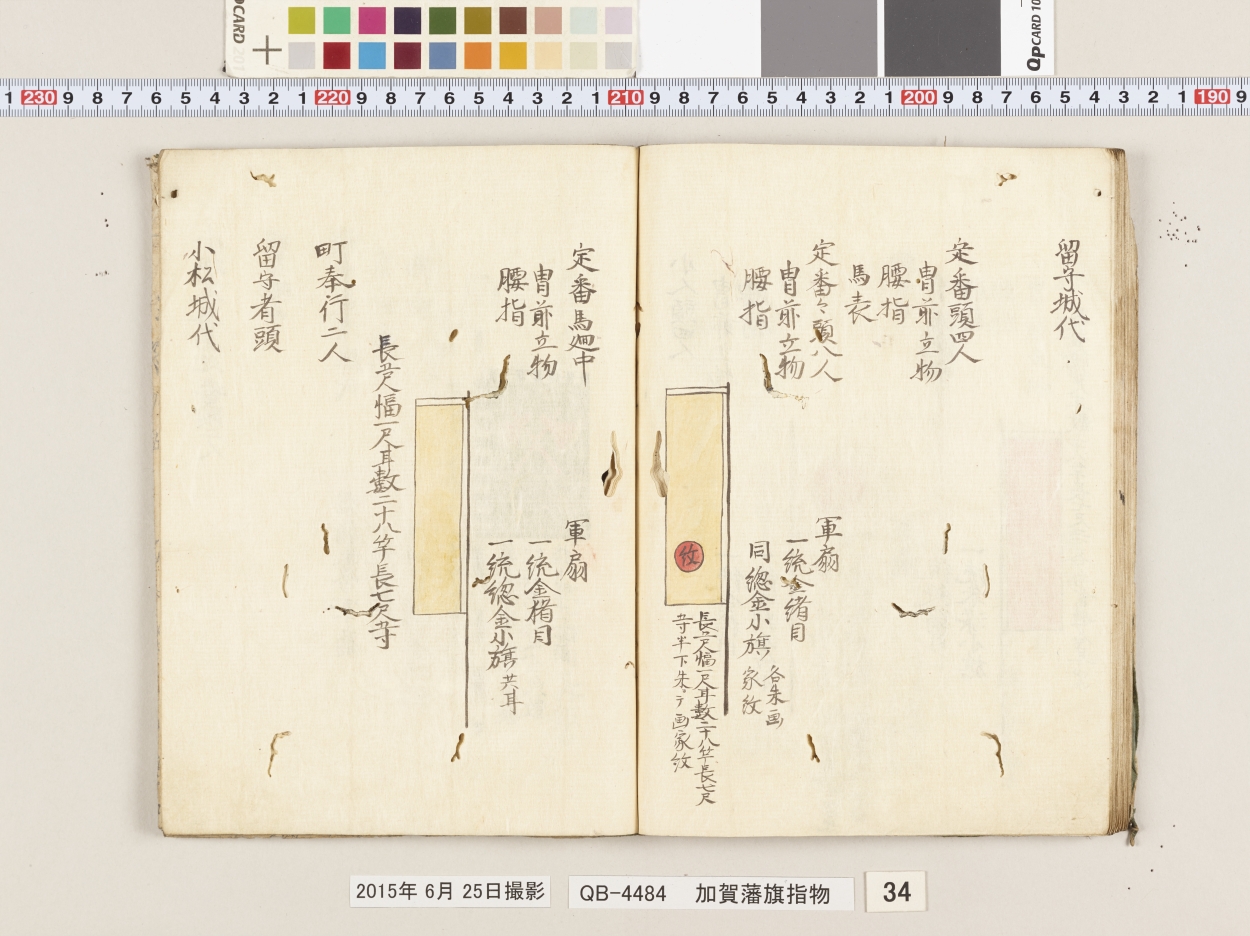 QPCARD 201
QPCARD 10
1 230 9 8 7 6 5 4 3 2 1 220 9 8 7 6 5 4 3 2 1 210 9 8 7 6 5 4 3 2 1 200 9 8 7 6 5 4 3 2 1 190 9
留守城代
定番頭四人
冑前立物
腰指
馬表
定番々頭八人
軍扇
冑前立物
一統金緒目
腰指
同總金小旗
各朱画
家紋
紋
長五尺幅一尺耳數二十八竿長七尺
五寸半下朱ニテ画家紋
定番馬廻中
軍扇
冑前立物
一統金楮目
腰指
一統總金小旗共耳
長五尺幅一尺耳數二十八竿長七尺五寸
町奉行二人
留守者頭
小松城代
2015年 6月 25日撮影
QB-4484 加賀藩旗指物
34